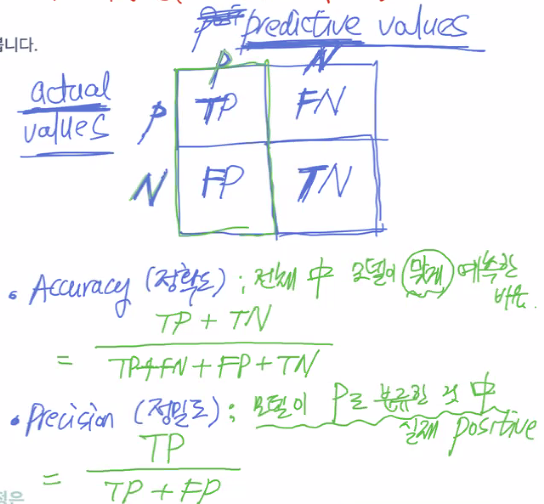 predictive values
봅니다.
P N
actual
values
P TP FN
N FP TN
• Accuracy (정확도) ; 전체 中 모델이 맞게 예측한
비율.
TP + TN
= TP+FN + FP + TN
• Precision (정밀도) ; 모델이 P로 분류한 것 中
실제 positive
TP
= TP + FP
정은